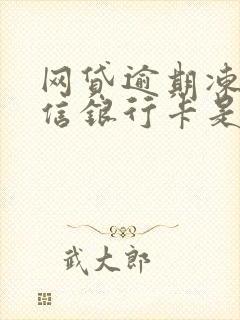 网贷逾期凍
信银行卡是
武大郎